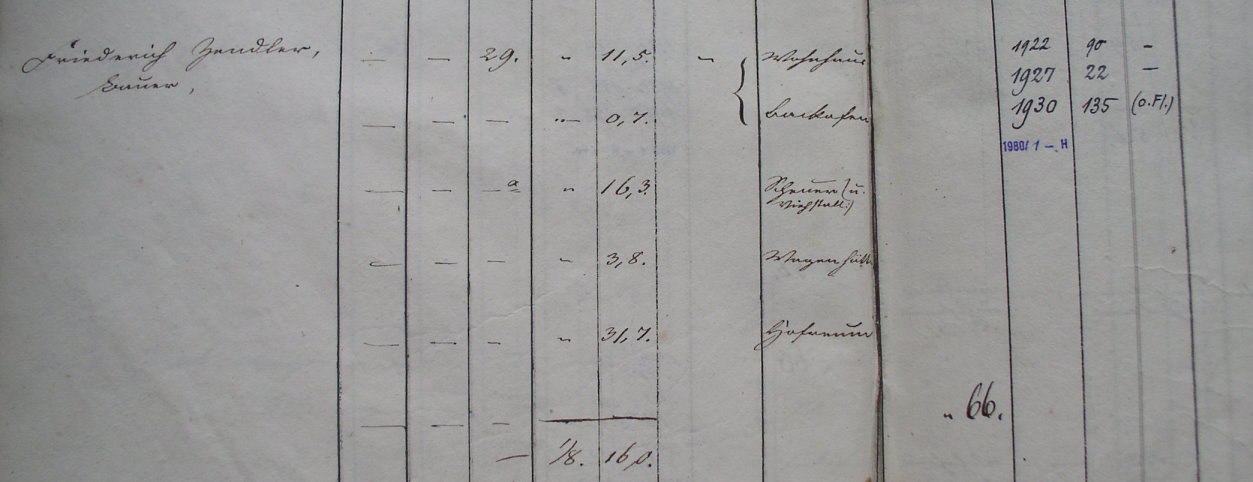 Friederich Zendler, — — 29. „ 11,5. „ { Wohnhaus 1922 90 –
Bauer, 1927 22 –
— — — „— 0,7. Backofen 1930 135 (o.Fl.)
1980/ 1 – H
— — — a „ 16,3. Scheuer (u.
Viehstall:)
— — — „ 3,8. Wagenhütte
— — — „ 31,7. Hofraum
„ 66.
— — —
— 1/8. 16,0.